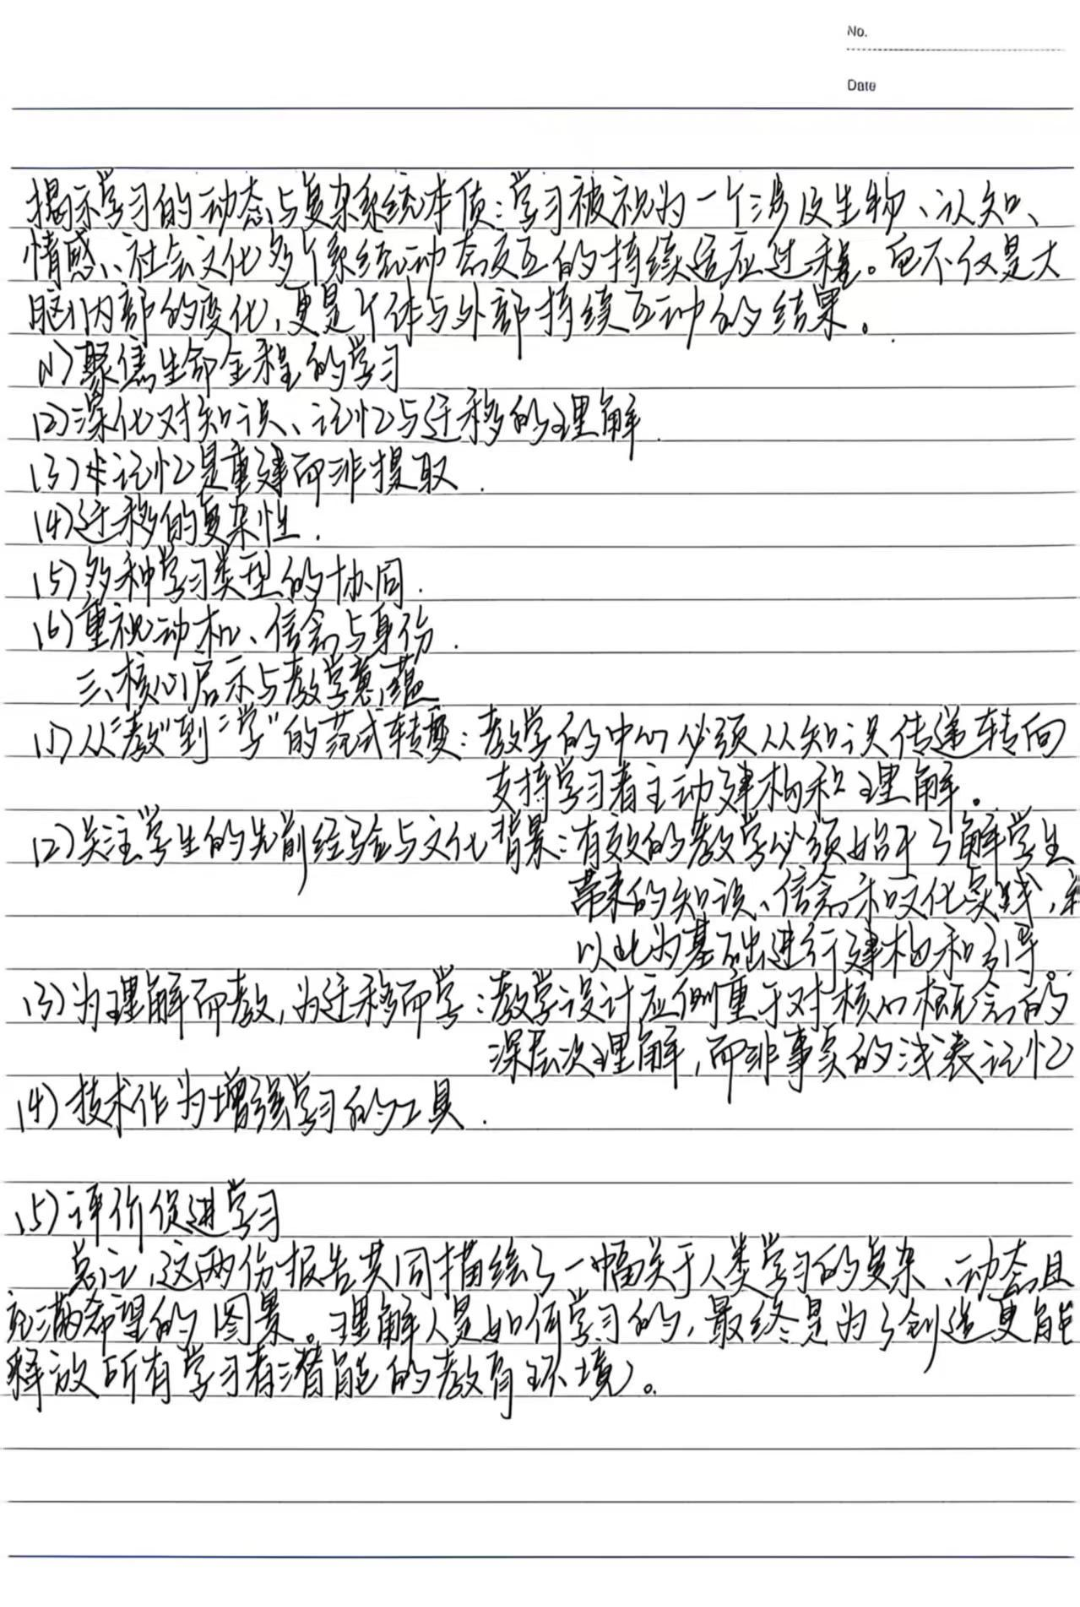 No.
Date
揭示学习的动态与复杂系统本质：学习被视为一个涉及生物、认知、
情感、社会文化多个系统动态交互的持续适应过程。它不仅是大
脑内部的变化，更是个体与外部持续互动的结果。
(1)聚焦生命全程的学习
(2)深化对知识、记忆与迁移的理解.
(3)记忆是重建而非提取.
(4)迁移的复杂性.
(5)多种学习类型的协同.
(6)重视动机、信念与身份.
三、核心启示与教学意蕴
(1)从“教”到“学”的范式转变：教学的中心必须从知识传递转向
支持学习者主动建构和理解。
(2)关注学生的先前经验与文化背景：有效的教学必须始于了解学生
带来的知识、信念和文化实践，
以此为基础进行建构和引导。
(3)为理解而教，为迁移而学：教学设计应侧重于对核心概念的
深层次理解，而非事实的浅表记忆
(4)技术作为增强学习的工具.
(5)评价促进学习
总之，这两份报告共同描绘了一幅关于人类学习的复杂、动态且
充满希望的图景。理解人是如何学习的，最终是为了创造更能
释放所有学习者潜能的教育环境。